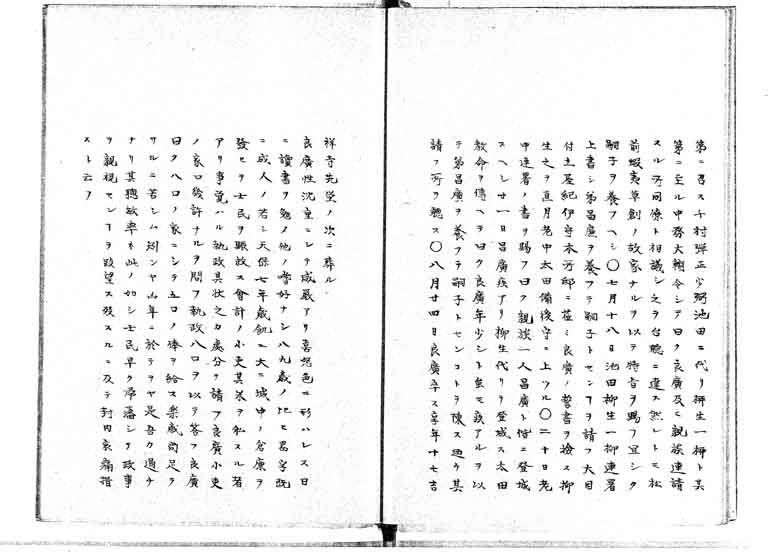 第ニ召ス千村弾正少弼池田ニ代リ柳生一柳ト其
第ニ至ル中務大輔令シテ曰ク良廣及ヒ親族連請
スル所同僚ト相議シ之ヲ台聴ニ達ス然レトモ松
前蝦夷草創ノ故家ナルヲ以テ特旨ヲ賜フ宜シク
嗣子ヲ養フヘシ〇七月十八日池田柳生一柳連署
上書シ弟昌廣ヲ養フテ嗣子トセンヿヲ請フ大目
付土屋紀伊守本所邸ニ莅ミ良廣ノ誓書ヲ検ス柳
生之ヲ直月老中太田備後守ニ上ツル〇二十日老
中連署ノ書ヲ賜フ曰ク親族一人昌廣ト偕ニ登城
スヘシ廿一日昌廣疾アリ柳生代リテ登城ス太田
教命ヲ傳ヘテ曰ク良廣年少シト雖モ疾アルヲ以
テ弟昌廣ヲ養フテ嗣子トセンコトヲ陳ス廼チ其
請フ所ヲ聴ス〇八月廿四日良廣卒ス享年十七吉
祥寺先塋ノ次ニ葬ル
良廣性沈重ニシテ威嚴アリ喜怒色ニ形ハレス日
ニ讀書ヲ勉ノ他ノ嗜好ナシ八九歳ノ比ヒ昌字既
ニ成人ノ若シ天保七年歳飢ユ大ニ城中ノ倉廩ヲ
發ヒテ士民ヲ賑救ス會計ノ小吏其米ヲ私スル者
アリ事覚ハル執政具状之カ處分ヲ請フ良廣小吏
ノ家口幾許ナルヲ問フ執政八口ヲ以テ答フ良廣
曰ク八口ノ家ニシテ五口ノ俸ヲ給ス樂歳尚足ラ
サルニ苦シム況ンヤ凶年ニ於テヲヤ是吾カ過チ
ナリ其聴敏率ネ此ノ如シ士民早ク帰藩シテ政事
ヲ親視センヿヲ跂望ス歿スルニ及テ封内哀痛措
スト云フ